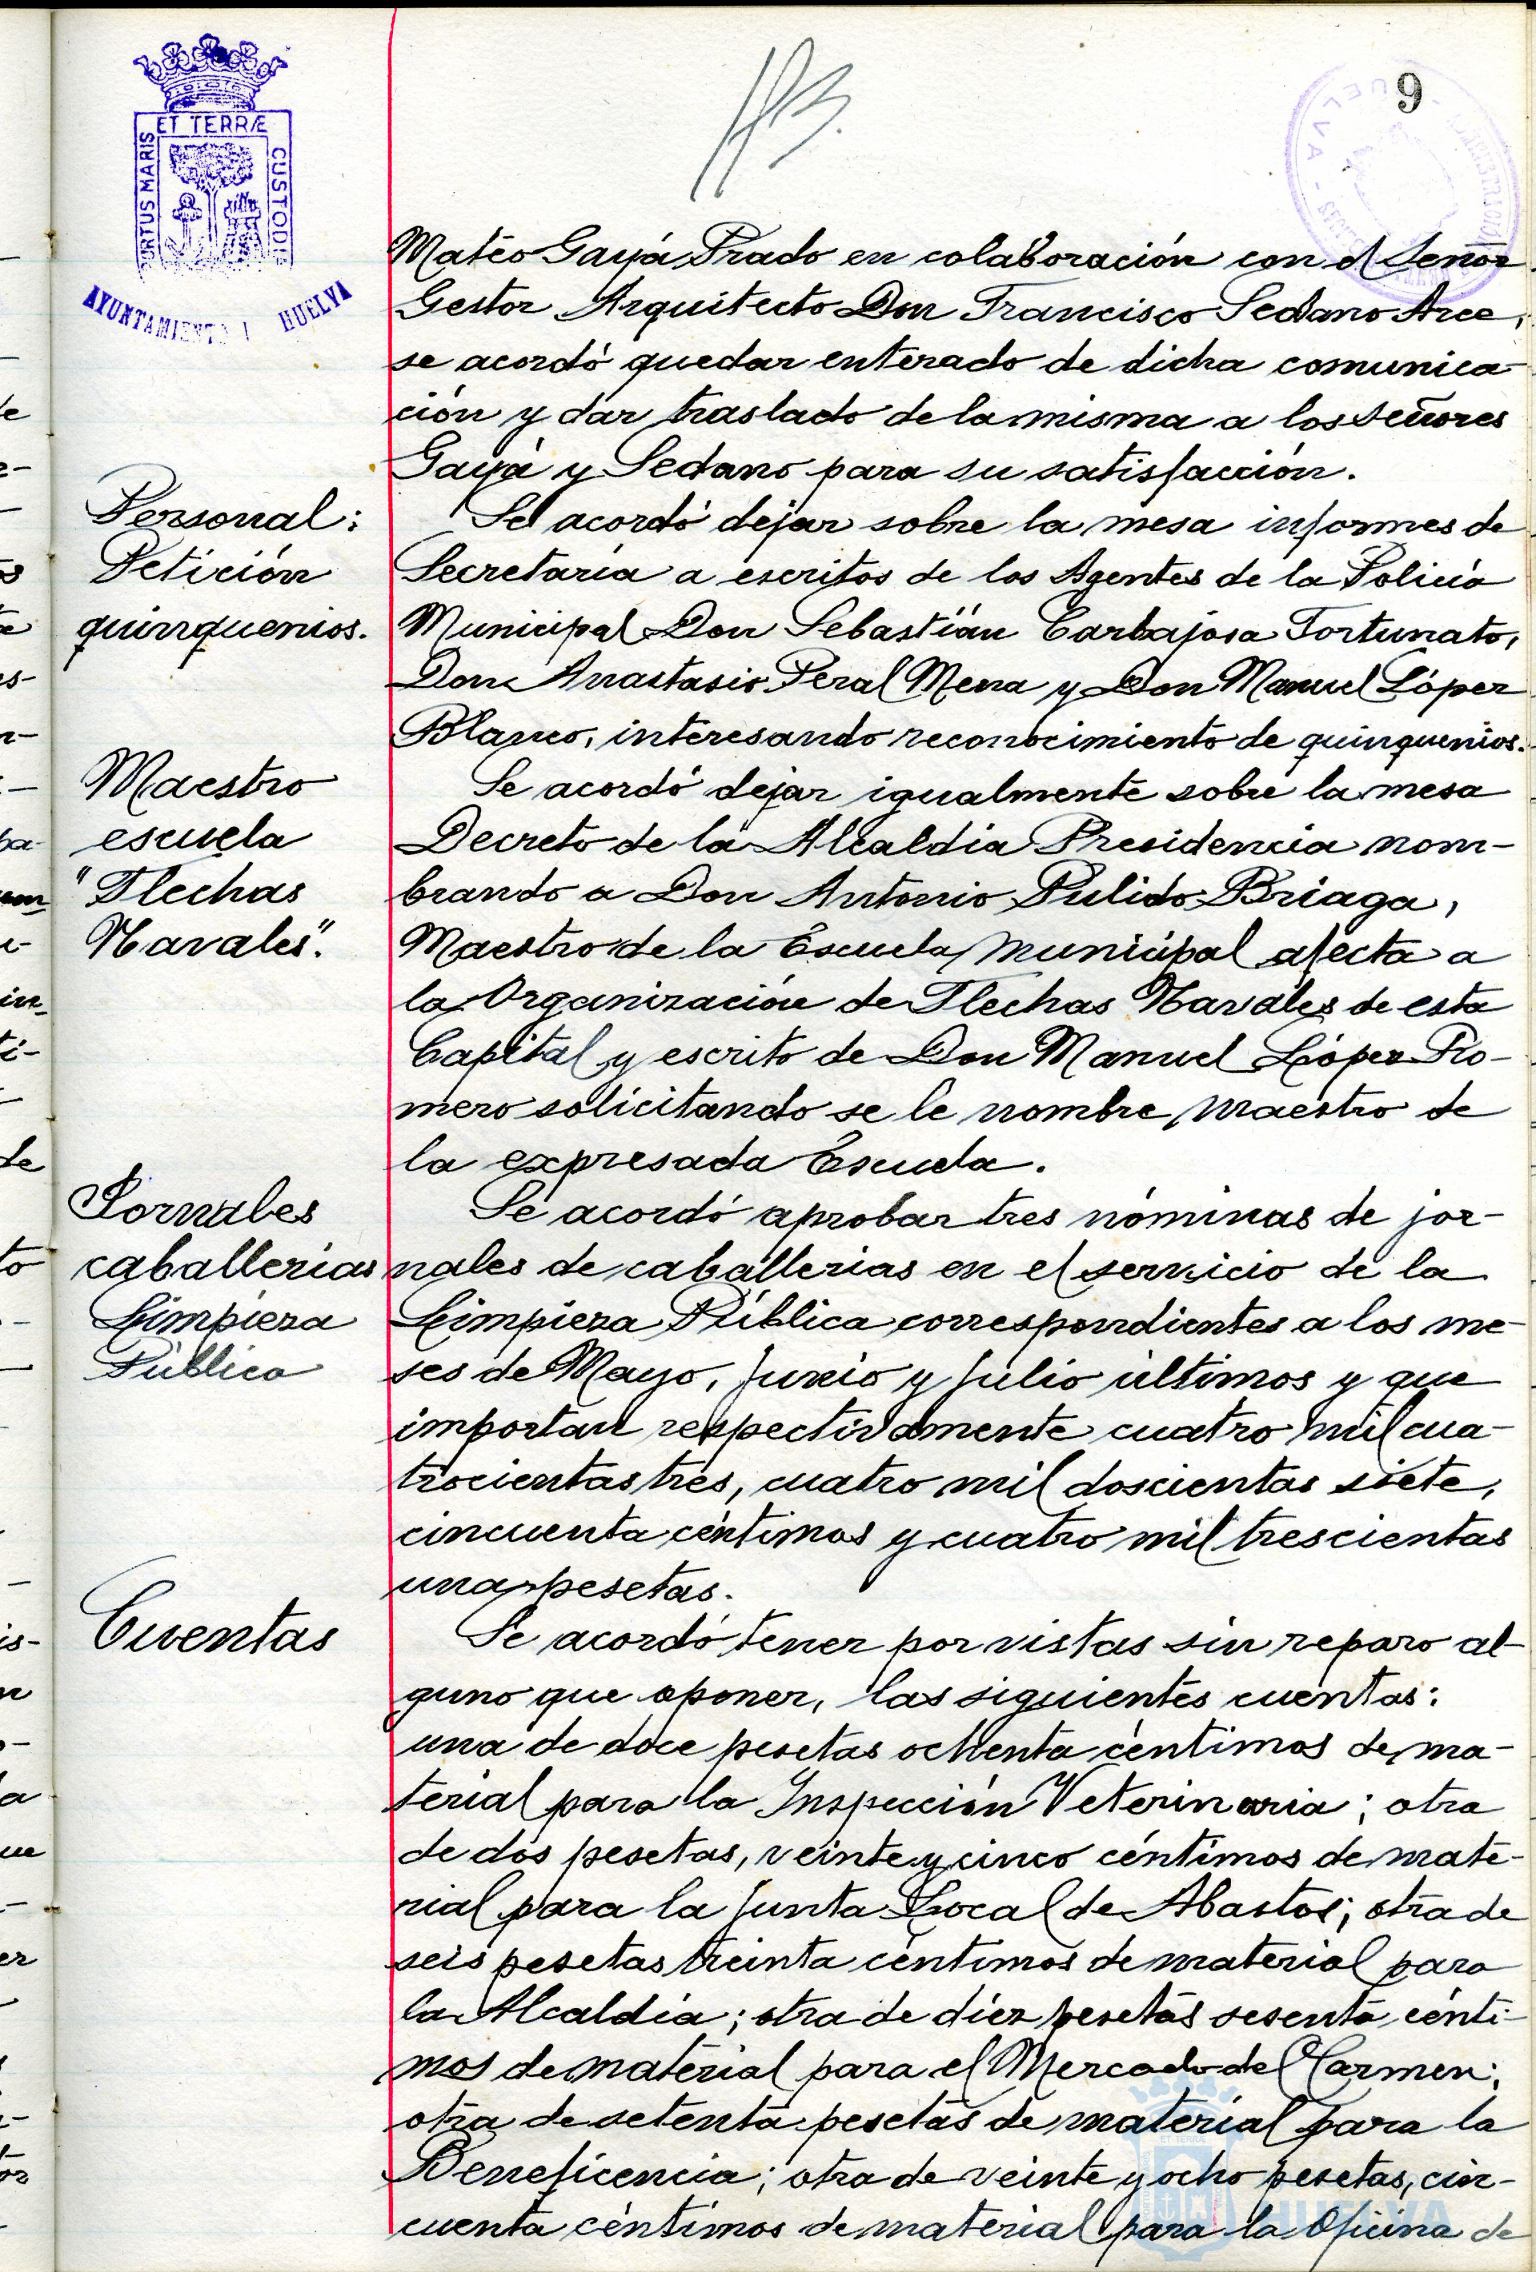 9
PORTUS MARIS
ET TERRÆ
CUSTODIA
AYUNTAMIENTO HUELVA
HUELVA
Mateo Gayá Prado en colaboración con el Señor
Gestor Arquitecto Don Francisco Sedano Arce,
se acordó quedar enterado de dicha comunica-
ción y dar traslado de la misma a los señores
Gayá y Sedano para su satisfacción.
Personal:
Petición
quinquenios.
Se acordó dejar sobre la mesa informes de
Secretaría a escritos de los Agentes de la Policía
Municipal Don Sebastián Carbajosa Fortunato,
Don Anastasio Peral Mena y Don Manuel López
Blanco, interesando reconocimiento de quinquenios.
Maestro
escuela
"Flechas
Navales".
Se acordó dejar igualmente sobre la mesa
Decreto de la Alcaldía Presidencia nom-
brando a Don Antonio Pulido Briaga,
Maestro de la Escuela municipal afecta a
la Organización de Flechas Navales de esta
Capital y escrito de Don Manuel López Ro-
mero solicitando se le nombre, maestro de
la expresada Escuela.
Jornales
caballerias
Limpieza
Pública
Se acordó aprobar tres nóminas de jor-
nales de caballerias en el servicio de la
Limpieza Pública correspondientes a los me-
ses de Mayo, Junio y Julio últimos y que
importan respectivamente cuatro mil cua-
trocientas tres, cuatro mil doscientas siete,
cincuenta céntimos y cuatro mil trescientas
una pesetas.
Cuentas
Se acordó tener por vistas sin reparo al-
guno que oponer, las siguientes cuentas:
una de doce pesetas ochenta céntimos de ma-
terial para la Inspección Veterinaria; otra
de dos pesetas, veinte y cinco céntimos de mate-
rial para la Junta Local de Abastos; otra de
seis pesetas treinta céntimos de material para
la Alcaldía; otra de diez pesetas sesenta cénti-
mos de material para el Mercado del Carmen;
otra de setenta pesetas de material para la
Beneficencia; otra de veinte y ocho pesetas, cin-
cuenta céntimos de material para la Oficina de
HUELVA